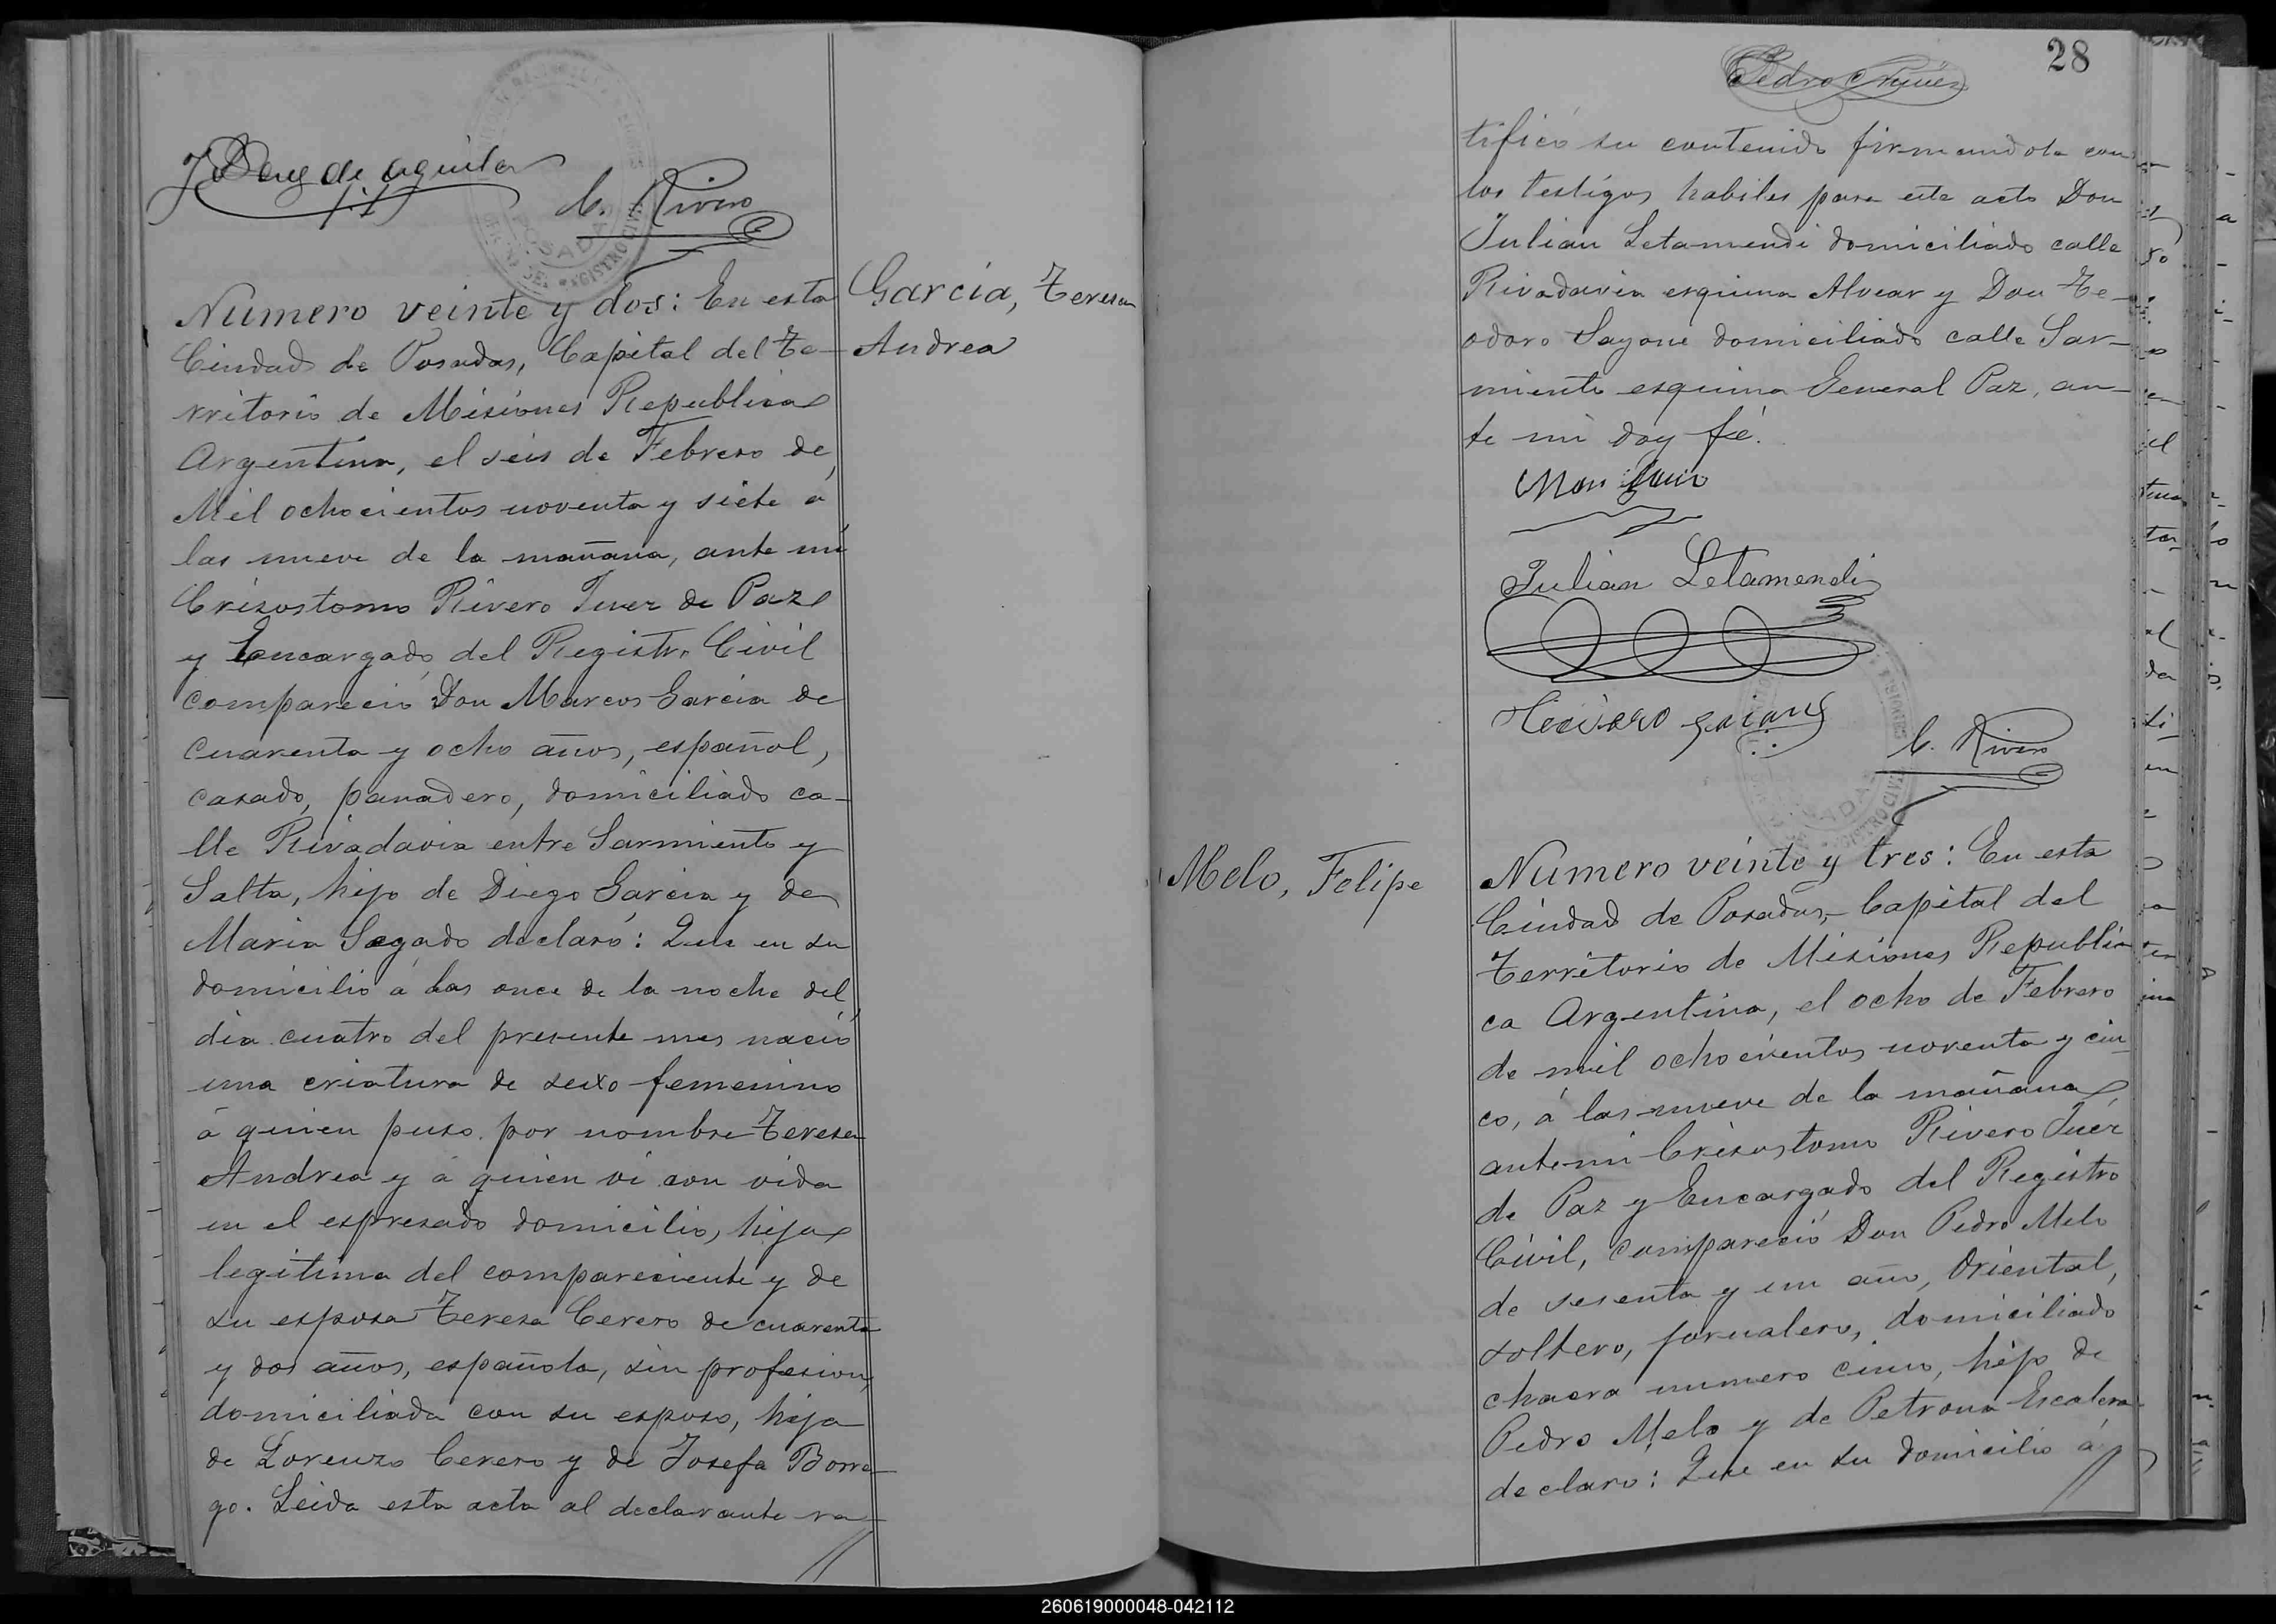 J. Baez de Aguilar
C. Rivero
POSADAS
REGISTRO CIVIL
García, Teresa
Andrea
Numero veinte y dos: En esta
Ciudad de Posadas, Capital del Te-
rritorio de Misiones Republica
Argentina, el seis de Febrero de
Mil ochocientos noventa y siete á
las nueve de la mañana, ante mi
Crisostomo Rivero Juez de Paz
y Encargado del Registro Civil
compareció Don Marcos Garcia de
cuarenta y ocho años, español,
casado, panadero, domiciliado ca-
lle Rivadavia entre Sarmiento y
Salta, hijo de Diego Garcia y de
Maria Segado declaró: Que en su
domicilio á las once de la noche del
dia cuatro del presente mes nació
una criatura de sexo femenino
á quien puso por nombre Teresa
Andrea y á quien vi con vida
en el espresado domicilio, hija
legitima del compareciente y de
su esposa Teresa Cerero de cuarenta
y dos años, española, sin profesion,
domiciliada con su esposo, hija
de Lorenzo Cerero y de Josefa Borre-
go. Leida esta acta al declarante ra-
28
Pedro Nuñez
tificó su contenido firmandola con
los testigos habiles para este acto Don
Julian Letamendi domiciliado calle
Rivadavia esquina Alvear y Don Te-
odoro Sayone domiciliado calle Sar-
miento esquina General Paz, an-
te mi doy fé.
Julian Letamendi
C. Rivero
Melo, Felipe
Numero veinte y tres: En esta
Ciudad de Posadas, Capital del
Territorio de Misiones Republi-
ca Argentina, el ocho de Febrero
de mil ochocientos noventa y cin-
co, á las nueve de la mañana
ante mi Crisostomo Rivero Juez
de Paz y Encargado del Registro
Civil, compareció Don Pedro Melo
de sesenta y un año, Oriental,
soltero, jornalero, domiciliado
chacra numero cinco, hijo de
Pedro Melo y de Petrona Escalera
declaro: Que en su domicilio á
260619000048-042112